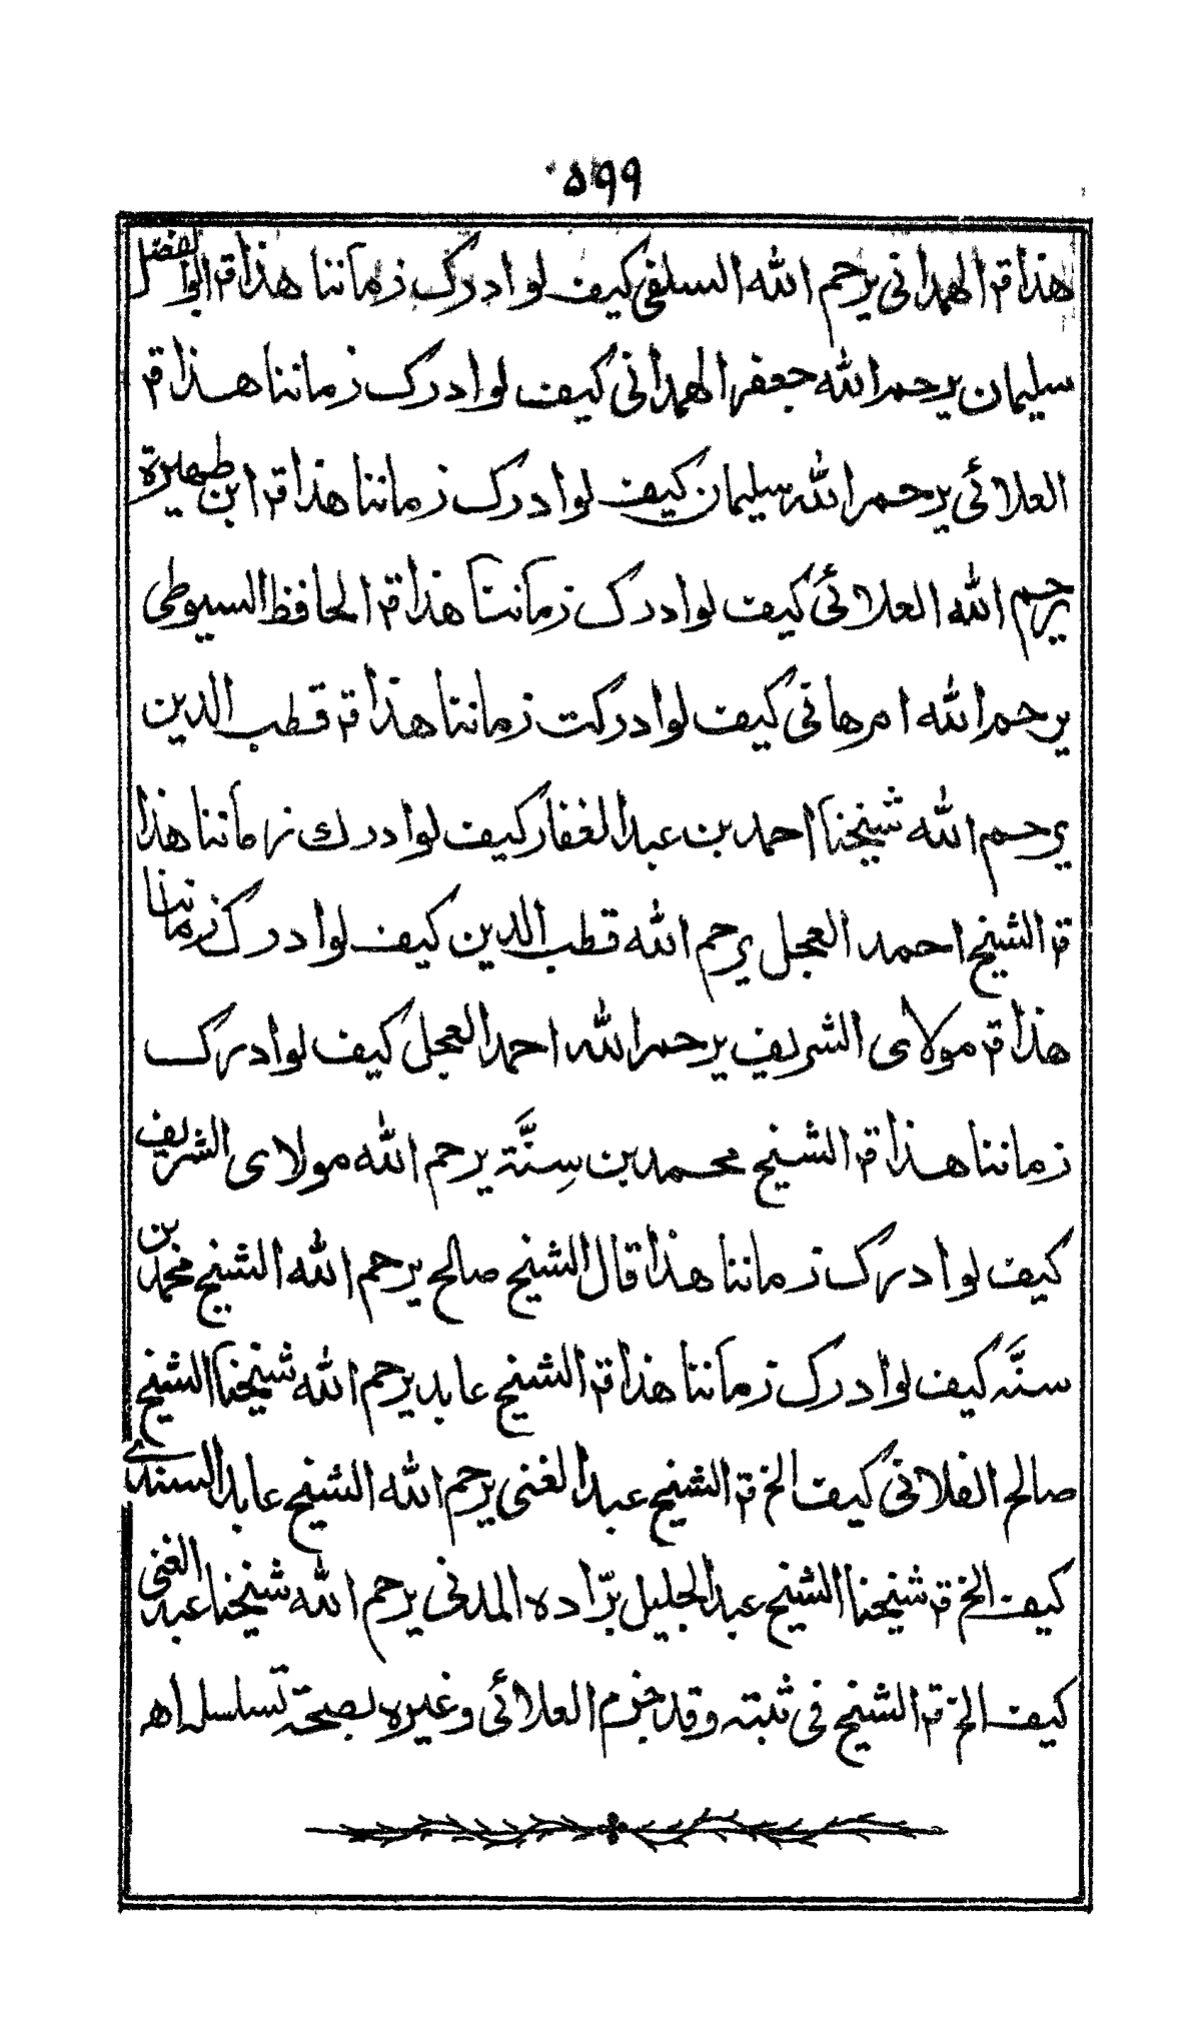 ٥٩٩
هذا قر الهمدانى يرحم الله السلفى كيف لوادرك زماننا هذا قر ابوالفضل
سليمان يرحم الله جعفر الهمدانى كيف لوادرك زماننا هذا قر
العلائى يرحم الله سليمان كيف لوادرك زماننا هذا قر ابن ظهيرة
يرحم الله العلائى كيف لوادرك زماننا هذا قر الحافظ السيوطى
يرحم الله ام هانى كيف لوادركت زماننا هذا قر قطب الدين
يرحم الله شيخنا احمد بن عبد الغفار كيف لوادرك زماننا هذا
قر الشيخ احمد العجل يرحم الله قطب الدين كيف لوادرك زماننا
هذا قر مولاى الشريف يرحم الله احمد العجل كيف لوادرك
زماننا هذا قر الشيخ محمد بن سِنَّة يرحم الله مولاى الشريف
كيف لوادرك زماننا هذا قال الشيخ صالح يرحم الله الشيخ محمد بن
سنَّه كيف لوادرك زماننا هذا قر الشيخ عابد يرحم الله شيخنا الشيخ
صالح الفلانى كيف الخ قر الشيخ عبد الغنى يرحم الله الشيخ عابد السندى
كيف الخ قر شيخنا الشيخ عبد الجليل برّاده المدنى يرحم الله شيخنا عبد الغنى
كيف الخ قر الشيخ فى ثبته وقد جزم العلائى وغيره بصحة تسلسله اھ